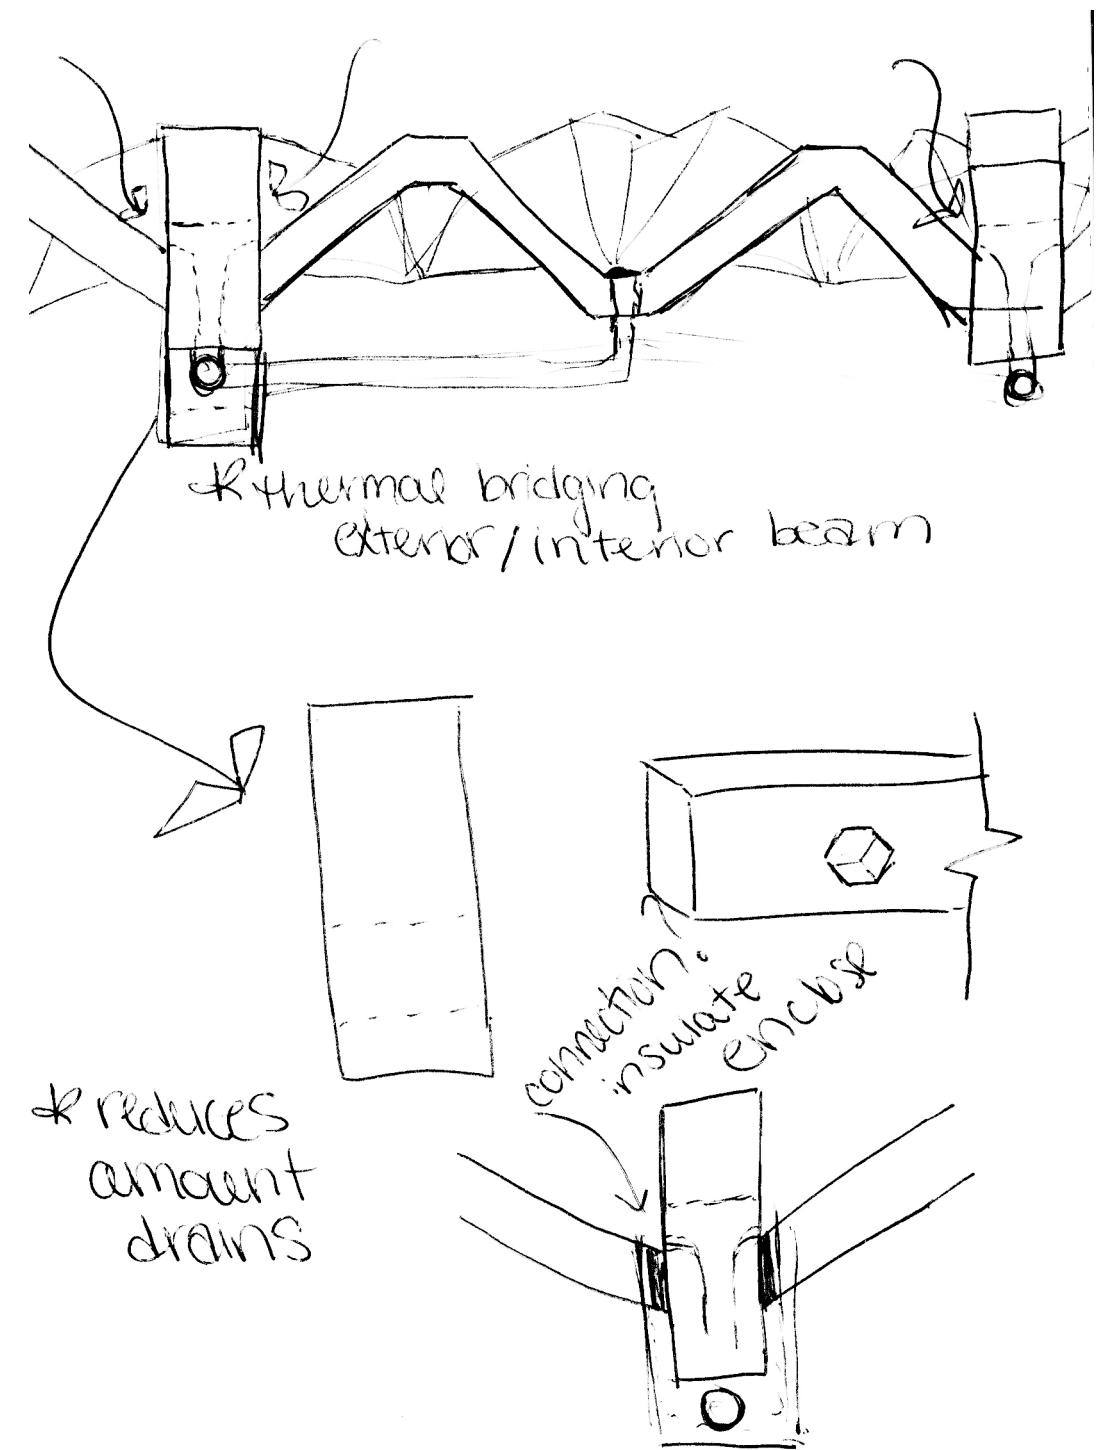 * thermal bridging
exterior/interior beam
connection?
insulate
enclose
* reduces
amount
drains